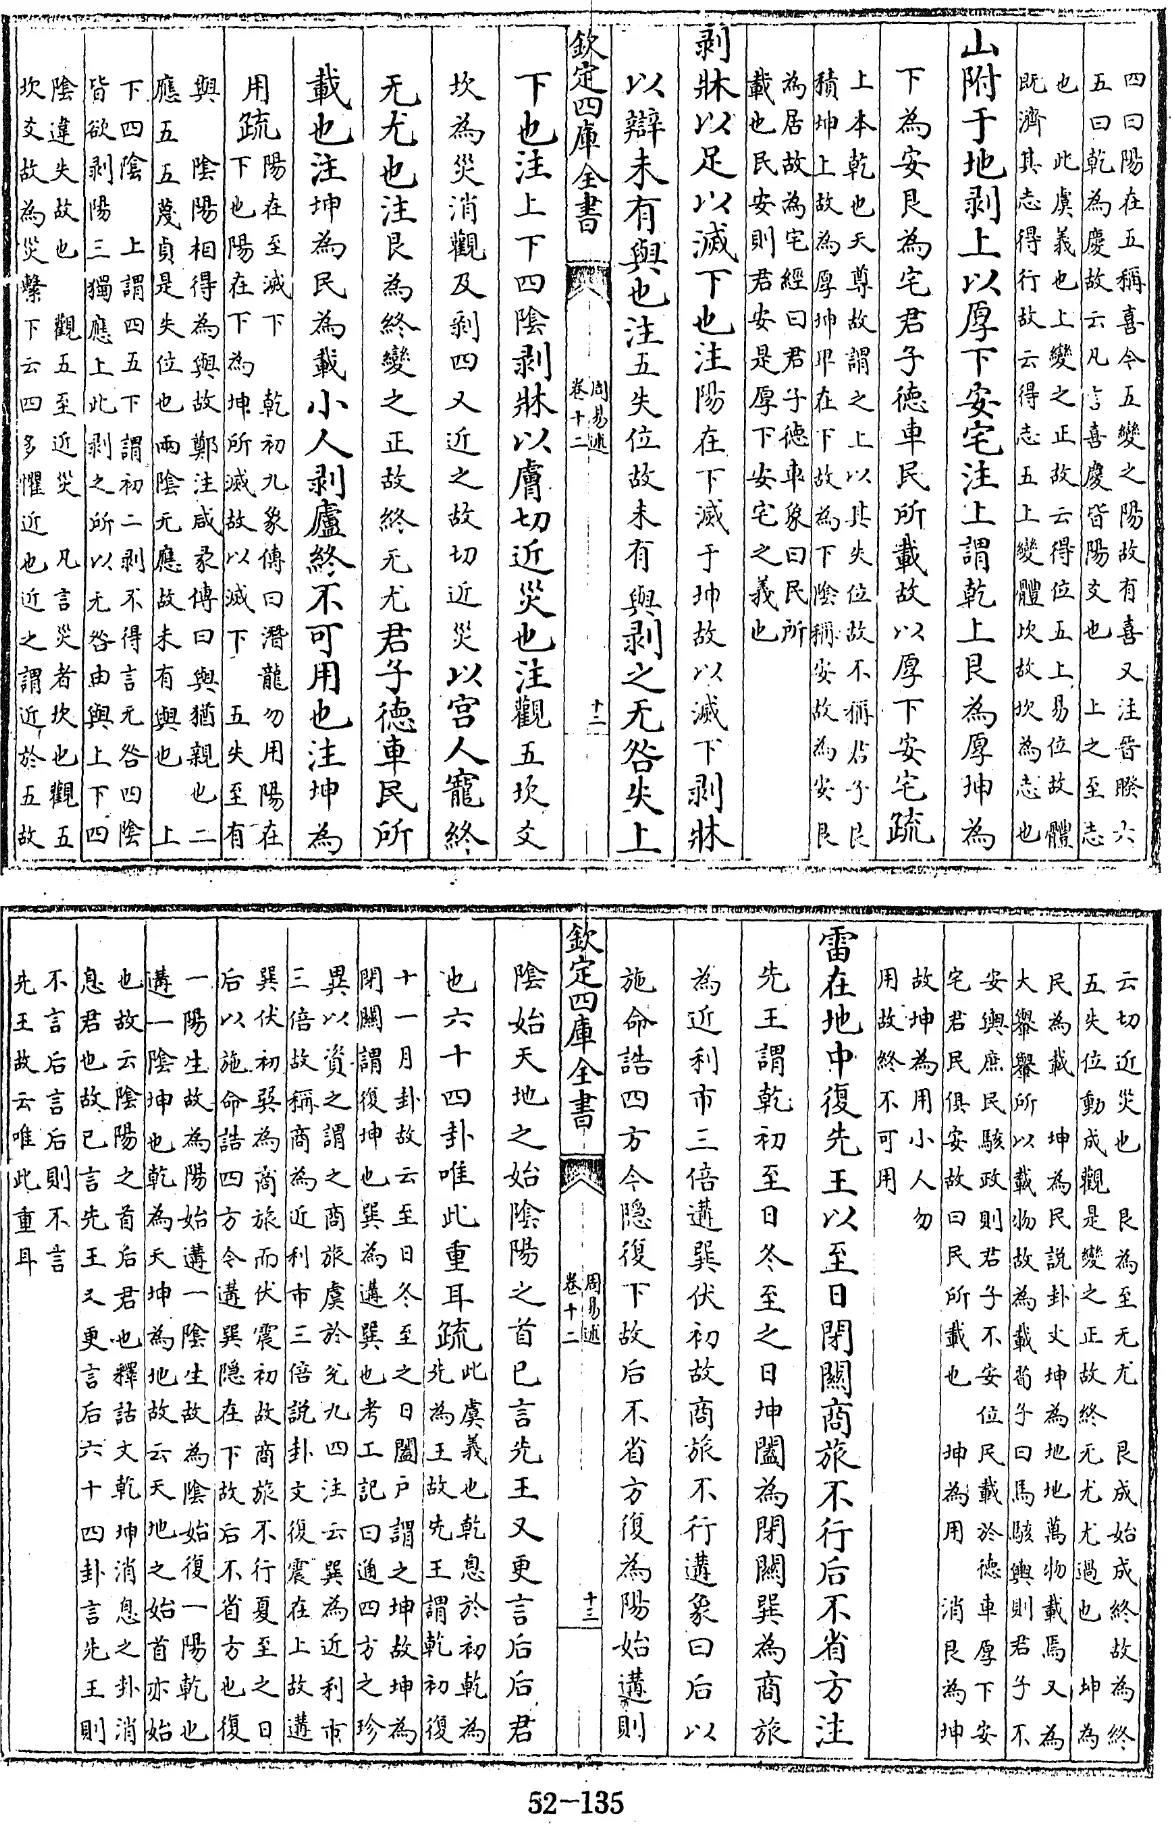 四曰陽在五稱喜今五變之陽故有喜又注晉睽六
五曰乾為慶故云凡言喜慶皆陽爻也　上之至志
也　此虞義也上變之正故云得位五上易位故體
既濟其志得行故云得志五上變體坎故坎為志也
山附于地剥上以厚下安宅注上謂乾上艮為厚坤為
下為安艮為宅君子德車民所載故以厚下安宅疏
上本乾也天尊故謂之上以其失位故不稱君子艮
積坤上故為厚坤卑在下故為下陰稱安故為安艮
為居故為宅經曰君子德車象曰民所
載也民安則君安是厚下安宅之義也
剥牀以足以滅下也注陽在下滅于坤故以滅下剥牀
以辯未有與也注五失位故未有與剥之无咎失上
欽定四庫全書
周易述
卷十二
十二
下也注上下四陰剥牀以膚切近災也注觀五坎爻
坎為災消觀及剥四又近之故切近災以宮人寵終
无尤也注艮為終變之正故終无尤君子德車民所
載也注坤為民為載小人剥廬終不可用也注坤為
用疏
陽在至滅下　乾初九象傳曰潛龍勿用陽在
下也陽在下為坤所滅故以滅下　五失至有
與　陰陽相得為與故鄭注咸彖傳曰與猶親也二
應五五蔑貞是失位也兩陰无應故未有與也　上
下四陰　上謂四五下謂初二剥不得言无咎四陰
皆欲剥陽三獨應上此剥之所以无咎由與上下四
陰違失故也　觀五至近災　凡言災者坎也觀五
坎爻故為災繫下云四多懼近也近之謂近於五故
云切近災也　艮為至无尤　艮成始成終故為終
五失位動成觀是變之正故終无尤尤過也　坤為
民為載　坤為民說卦文坤為地地萬物載焉又為
大轝轝所以載物故為載荀子曰馬駭輿則君子不
安輿庶民駭政則君子不安位民載於德車厚下安
宅君民俱安故曰民所載也　坤為用　消艮為坤
故坤為用小人勿
用故終不可用
雷在地中復先王以至日閉關商旅不行后不省方注
先王謂乾初至日冬至之日坤闔為閉關巽為商旅
為近利市三倍遘巽伏初故商旅不行遘象曰后以
施命誥四方今隠復下故后不省方復為陽始遘則
欽定四庫全書
周易述
卷十二
十三
陰始天地之始陰陽之首已言先王又更言后后君
也六十四卦唯此重耳疏
此虞義也乾息於初乾為
先為王故先王謂乾初復
十一月卦故云至日冬至之日闔戶謂之坤故坤為
閉關謂復坤也巽為遘巽也考工記曰通四方之珍
異以資之謂之商旅虞於兌九四注云巽為近利市
三倍故稱商為近利市三倍說卦文復震在上故遘
巽伏初巽為商旅而伏震初故商旅不行夏至之日
后以施命誥四方今遘巽隠在下故后不省方也復
一陽生故為陽始遘一陰生故為陰始復一陽乾也
遘一陰坤也乾為天坤為地故云天地之始首亦始
也故云陰陽之首后君也釋詁文乾坤消息之卦消
息君也故已言先王又更言后六十四卦言先王則
不言后言后則不言
先王故云唯此重耳
52-135